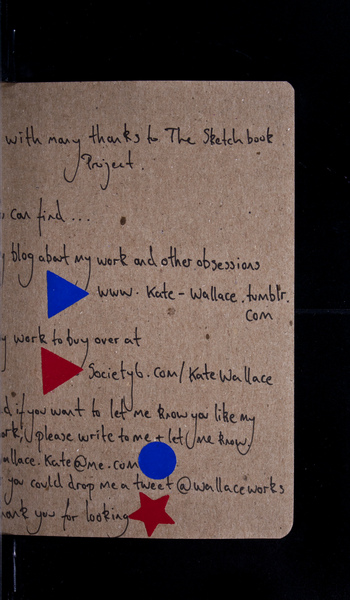 with many thanks to The Sketchbook
Project.
can find ...
blog about my work and other obsessions
www.Kate-Wallace.tumblr.
com
work to buy over at
Society6.com/KateWallace
if you want to let me know you like my
please write to me + let me know
allace.Kate@me.com
you could drop me a tweet @wallaceworks
hank you for looking